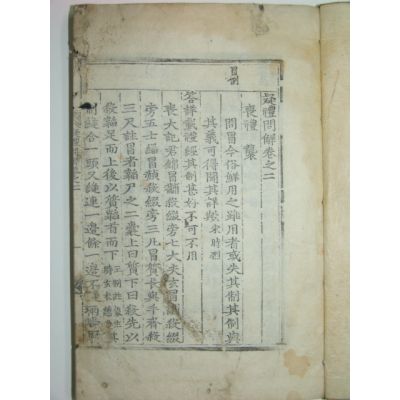 冒制
疑禮問解卷之二
喪禮 襲
問冒今俗鮮用之雖用者或失其制其制與
其義可得聞其詳歟 宋時烈
答詳載禮經其制甚好不可不用
喪大記君錦冒黼殺綴旁七大夫玄冒黼殺綴
旁五士緇冒赬殺綴旁三凡冒質長與手齊殺
三尺註冒者韜尸之二囊上曰質下曰殺先以
殺韜足而上後以質韜首而下
縫合一頭又縫連一邊餘一邊不